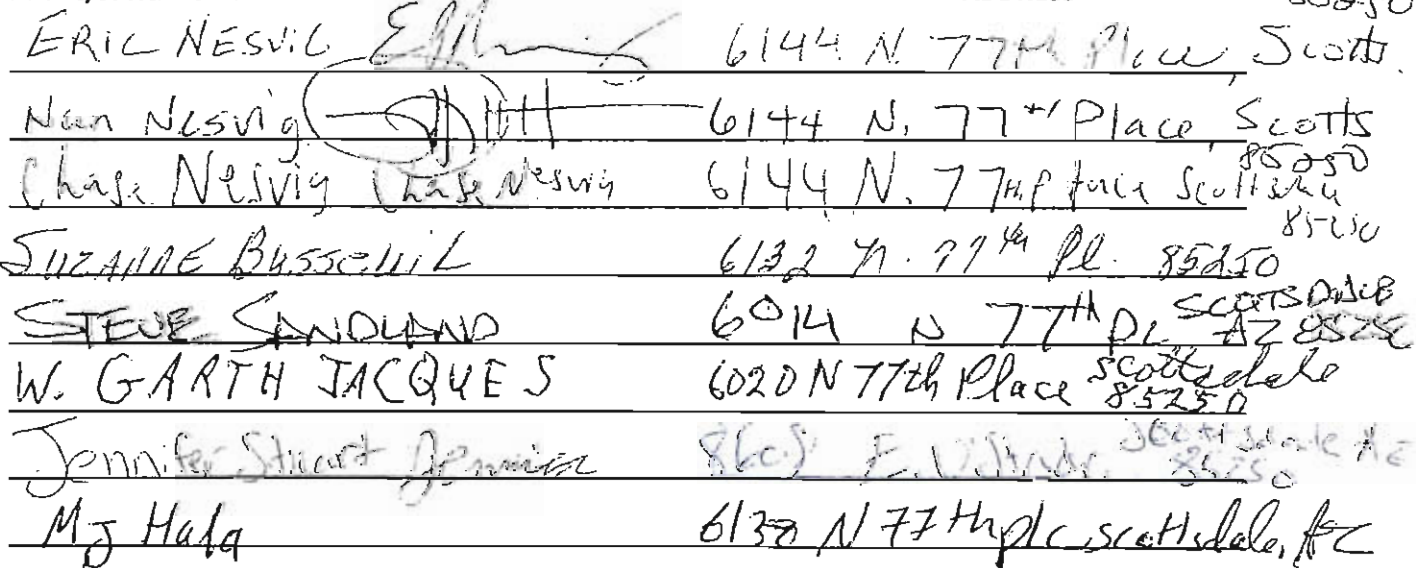 85250
ERIC NESVIG 6144 N. 77th Place, Scotts.
Nesvig 6144 N. 77th Place, Scotts
85250
Chase Nesvig Chase Nesvig 6144 N. 77TH Place Scottsdale
85250
SUZANNE 6132 N. 77th Pl. 85250
STEVE SANDLAND 6014 N 77th PL SCOTSDALE
AZ
W. GARTH JACQUES 6020 N 77th Place Scottsdale
85250
Jennifer Stuart E. Scottsdale AZ
85250
MJ Hala N 77th plc, scottsdale, AZ